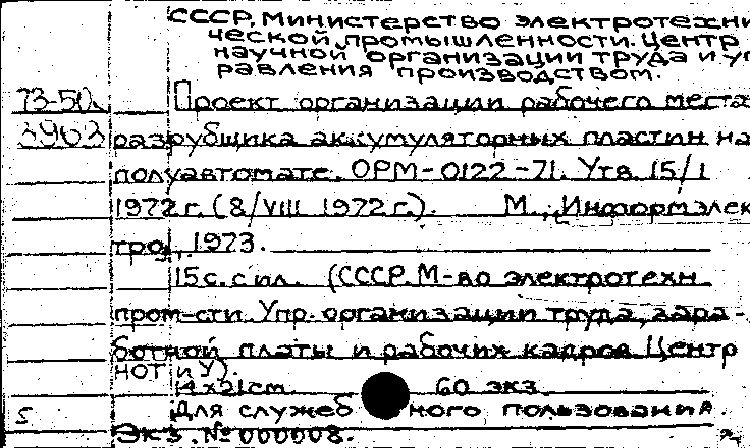 СССР, Министерство электротехни
ческой промышленности. Центр
научной организации труда и уп
равления производством.
73-50 Проект организации рабочего места
3963 разрубщика аккумуляторных пластин на
полуавтомате. ОРМ-0122-71. Утв. 15/I
1972г. (8/VIII 1972г.). М., "Информэлек
тро", 1973.
15с. с ил. (СССР. М-во электротехн
пром-сти. Упр. организации труда, зара-
ботной платы и рабочих кадров Центр
НОТ и У).
14х21см. 60 экз.
5 Для служебного пользования.
Экз. № 000008.